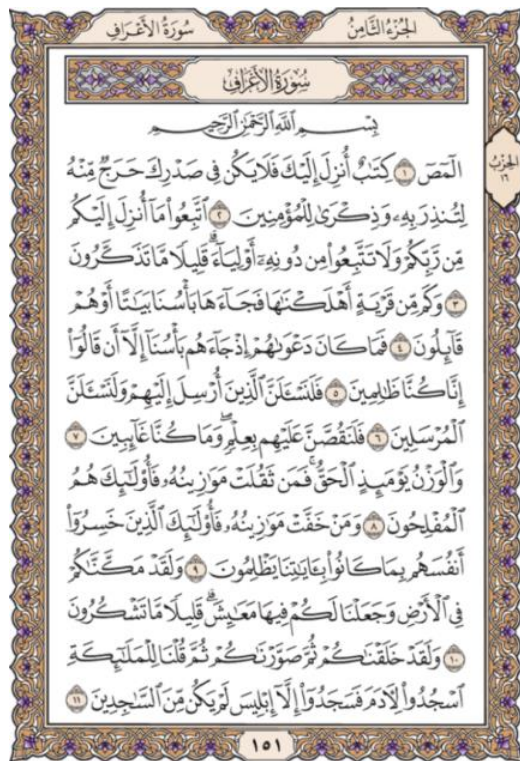 الجُزءُ الثَّامِنُ
سُورَةُ الأَعۡرَافِ
سُورَةُ الأَعۡرَافِ
بِسۡمِ ٱللَّهِ ٱلرَّحۡمَٰنِ ٱلرَّحِيمِ
الحِزۡبُ
١٦
الٓمٓصٓ ١ كِتَٰبٌ أُنزِلَ إِلَيۡكَ فَلَا يَكُن فِي صَدۡرِكَ حَرَجٞ مِّنۡهُ
لِتُنذِرَ بِهِۦ وَذِكۡرَىٰ لِلۡمُؤۡمِنِينَ ٢ ٱتَّبِعُواْ مَآ أُنزِلَ إِلَيۡكُم
مِّن رَّبِّكُمۡ وَلَا تَتَّبِعُواْ مِن دُونِهِۦٓ أَوۡلِيَآءَۗ قَلِيلٗا مَّا تَذَكَّرُونَ
٣ وَكَم مِّن قَرۡيَةٍ أَهۡلَكۡنَٰهَا فَجَآءَهَا بَأۡسُنَا بَيَٰتًا أَوۡ هُمۡ
قَآئِلُونَ ٤ فَمَا كَانَ دَعۡوَىٰهُمۡ إِذۡ جَآءَهُم بَأۡسُنَآ إِلَّآ أَن قَالُوٓاْ
إِنَّا كُنَّا ظَٰلِمِينَ ٥ فَلَنَسۡـَٔلَنَّ ٱلَّذِينَ أُرۡسِلَ إِلَيۡهِمۡ وَلَنَسۡـَٔلَنَّ
ٱلۡمُرۡسَلِينَ ٦ فَلَنَقُصَّنَّ عَلَيۡهِم بِعِلۡمٖۖ وَمَا كُنَّا غَآئِبِينَ ٧
وَٱلۡوَزۡنُ يَوۡمَئِذٍ ٱلۡحَقُّۚ فَمَن ثَقُلَتۡ مَوَٰزِينُهُۥ فَأُوْلَٰٓئِكَ هُمُ
ٱلۡمُفۡلِحُونَ ٨ وَمَنۡ خَفَّتۡ مَوَٰزِينُهُۥ فَأُوْلَٰٓئِكَ ٱلَّذِينَ خَسِرُوٓاْ
أَنفُسَهُم بِمَا كَانُواْ بِـَٔايَٰتِنَا يَظۡلِمُونَ ٩ وَلَقَدۡ مَكَّنَّٰكُمۡ
فِي ٱلۡأَرۡضِ وَجَعَلۡنَا لَكُمۡ فِيهَا مَعَٰيِشَۗ قَلِيلٗا مَّا تَشۡكُرُونَ
١٠ وَلَقَدۡ خَلَقۡنَٰكُمۡ ثُمَّ صَوَّرۡنَٰكُمۡ ثُمَّ قُلۡنَا لِلۡمَلَٰٓئِكَةِ
ٱسۡجُدُواْ لِأٓدَمَ فَسَجَدُوٓاْ إِلَّآ إِبۡلِيسَ لَمۡ يَكُن مِّنَ ٱلسَّٰجِدِينَ ١١
١٥١